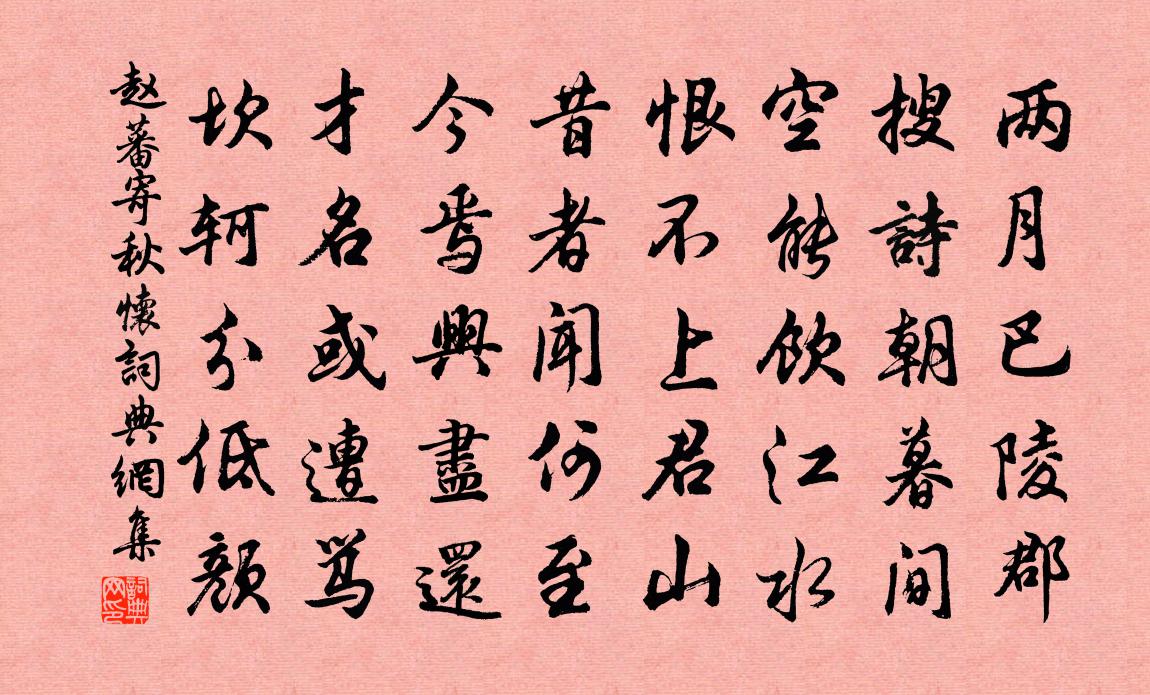 两月巴陵郡
搜詩朝暮间
空能饮江水
恨不上君山
昔者闻何至
今焉興盡還
才名或遭骂
坎轲分低颜
赵蕃寄秋懷詞典網集
詞典網印